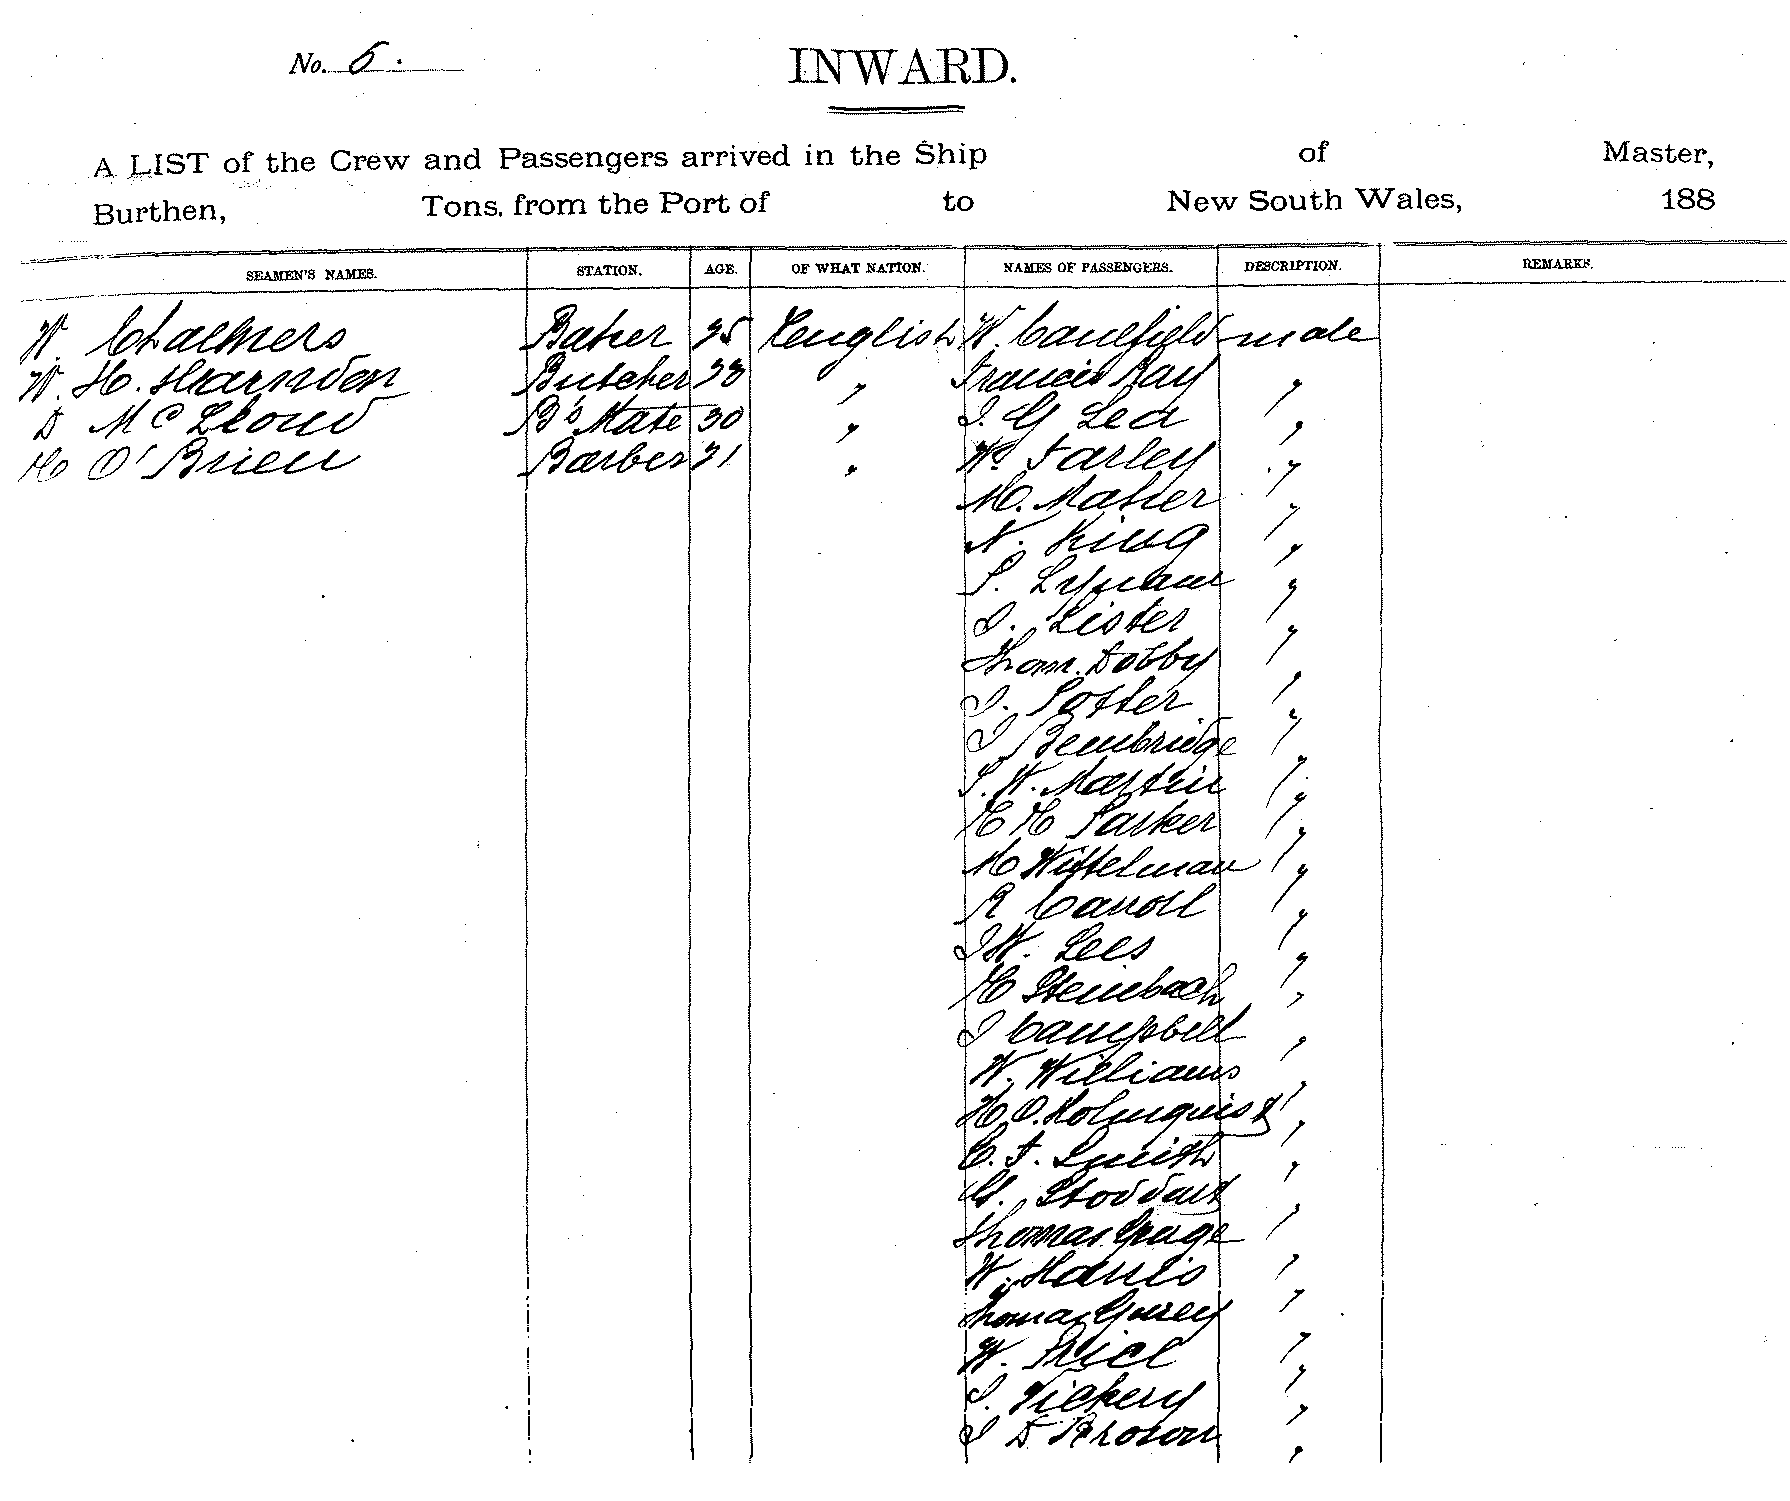 No. 6.
INWARD.
A LIST of the Crew and Passengers arrived in the Ship of Master,
Burthen, Tons, from the Port of to New South Wales, 188
SEAMEN'S NAMES. STATION. AGE. OF WHAT NATION. NAMES OF PASSENGERS. DESCRIPTION. REMARKS.
W. Chalmers Baker 25 English W. Caulfield male
W. H. Harnden Butcher 28 " Francis Ray "
D McLeoud B's Mate 30 " J. G Lea "
H O'Brien Barber 21 " Wm Farley "
H. Maher "
N. King "
S. Lynam "
J. Lister "
Thom. Dobby "
J. Potter "
J Bembridge "
S. W. Martin "
H H Parker "
H Wittelman "
R Carroll "
J W. Lees "
H Steinbach "
J Campbell "
W. Williams "
H O. Holmquist "
C. F. Smith "
G. Stoddart "
Thomas Gage "
W. Harris "
Thomas Gurey "
W. Price "
J. Vickery "
J D Brown "